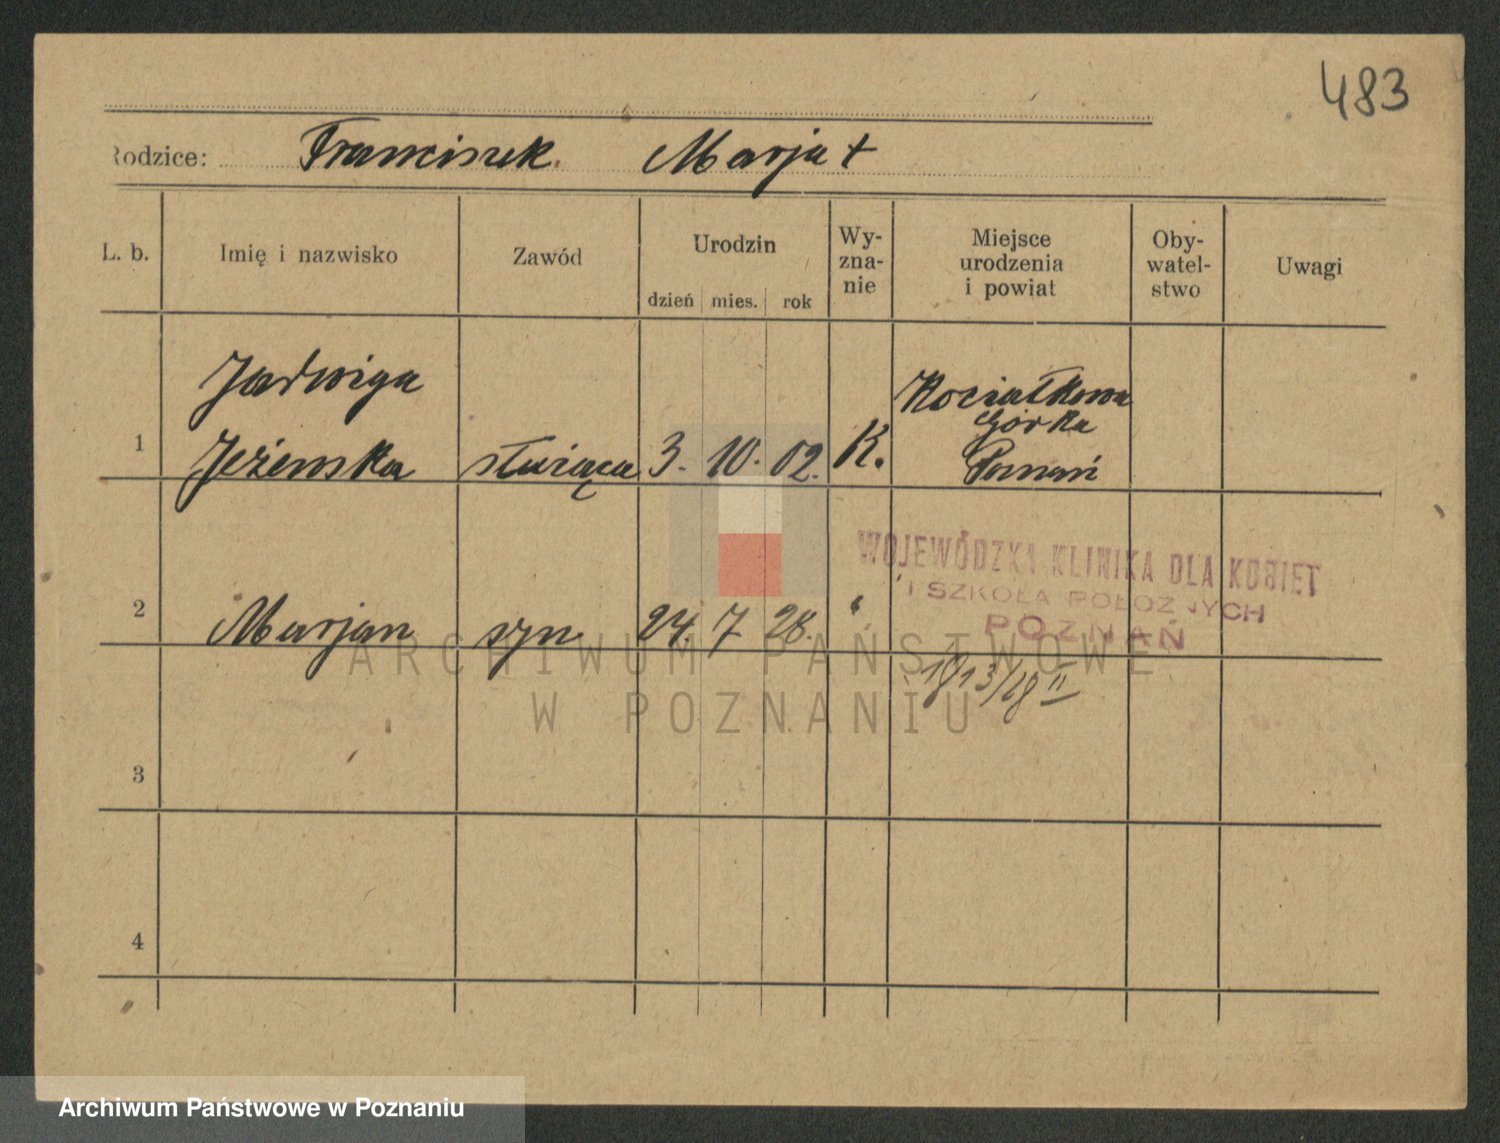 483
Rodzice: Franciszek. Marja +
L. b. Imię i nazwisko Zawód Urodzin Wy-
zna-
nie Miejsce
urodzenia
i powiat Oby-
watel-
stwo Uwagi
dzień mies. rok
Jadwiga
1 Jeżewska służąca 3. 10. 02. K. Kociałkowa
Górka
Poznań
WOJEWÓDZKA KLINIKA DLA KOBIET
I SZKOŁA POŁOŻNYCH
POZNAŃ
2 Marjan syn 24. 7. 28. "
1913/28 II
ARCHIWUM PAŃSTWOWE
W POZNANIU
3
4
Archiwum Państwowe w Poznaniu